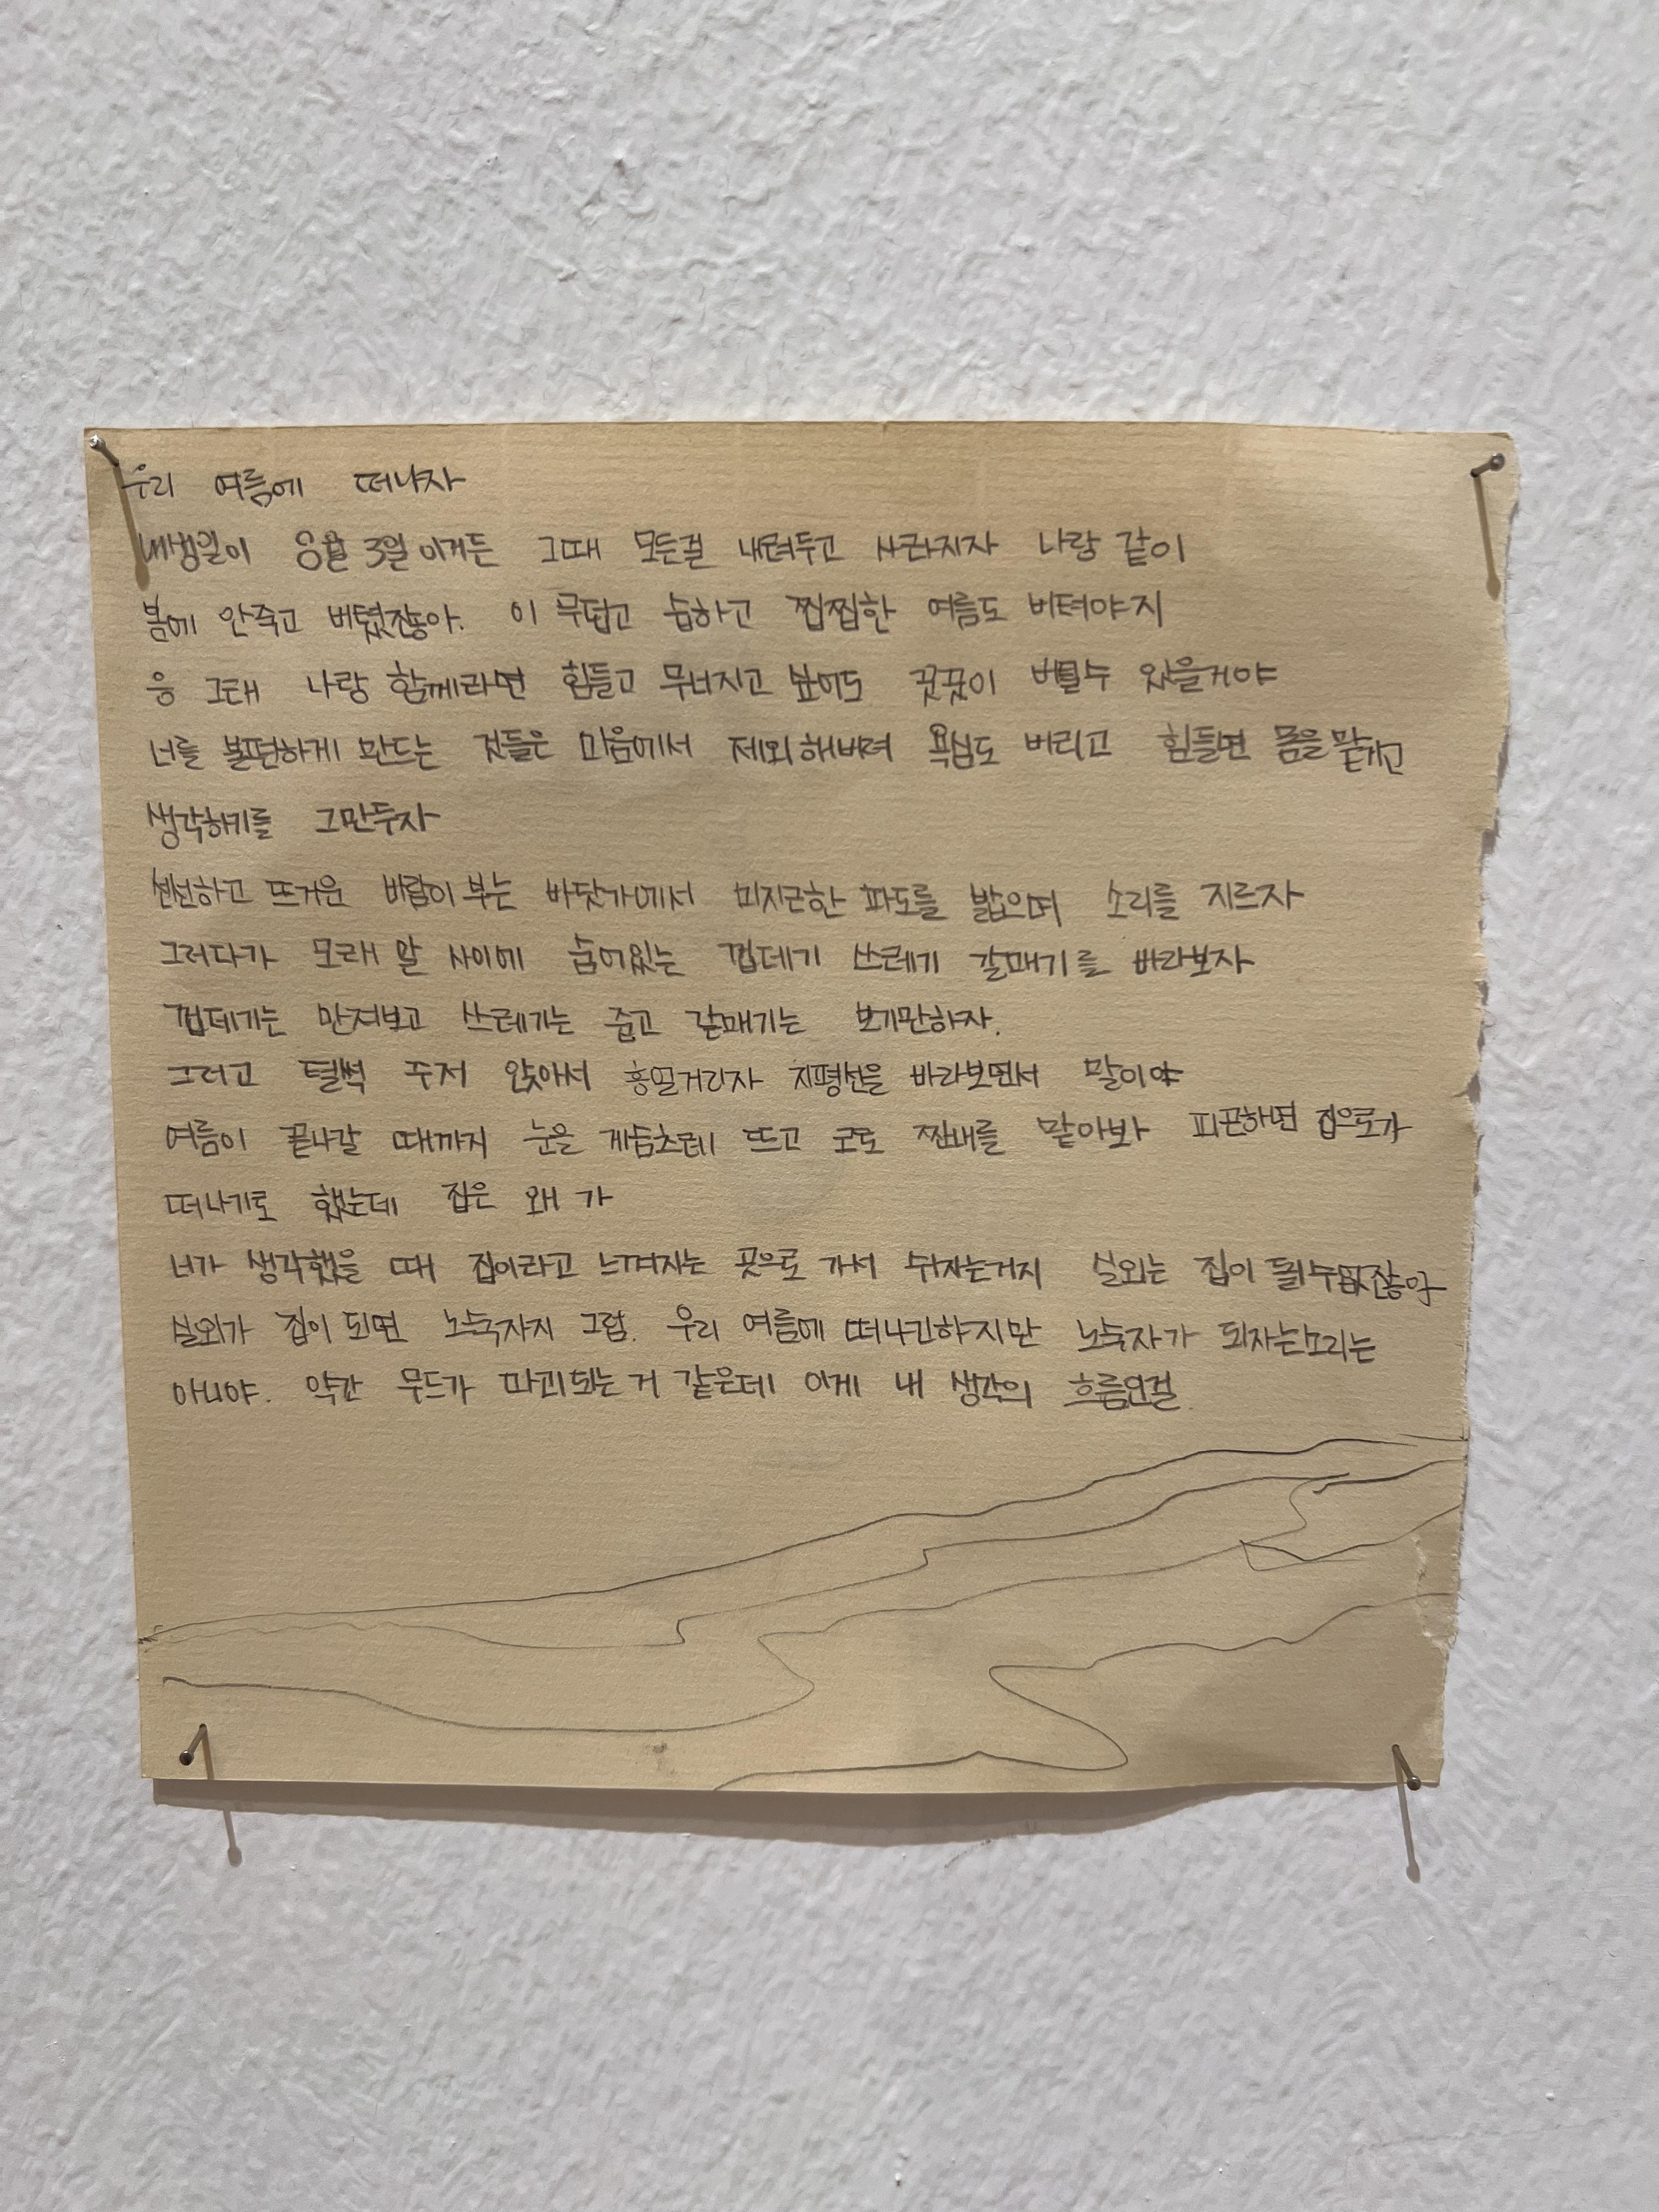 우리 여름에 떠나자
내생일이 8월 3일 이거든 그때 모든걸 내려두고 사라지자 나랑 같이
봄에 안죽고 버텼잖아. 이 무덥고 습하고 찝찝한 여름도 버텨야지
응 그래 나랑 함께라면 힘들고 무너지고 싶어도 꿋꿋이 버틸수 있을거야
너를 불편하게 만드는 것들은 마음에서 제외해버려 욕심도 버리고 힘들면 몸을 맡기고
생각하기를 그만두자
선선하고 뜨거운 바람이 부는 바닷가에서 미지근한 파도를 밟으며 소리를 지르자
그러다가 모래 알 사이에 숨어있는 껍데기 쓰레기 갈매기를 바라보자
껍데기는 만져보고 쓰레기는 줍고 갈매기는 보기만하자.
그러고 털썩 주저 앉아서 흥얼거리자 지평선을 바라보면서 말이야
여름이 끝나갈 때까지 눈은 게슴츠레 뜨고 코로 짠내를 맡아봐 피곤하면 집으로가
떠나기로 했는데 집은 왜 가
너가 생각했을 때 집이라고 느껴지는 곳으로 가서 쉬자는거지 실외는 집이 될수없잖아
실외가 집이 되면 노숙자지 그럼. 우리 여름에 떠나긴하지만 노숙자가 되자는소리는
아니야. 약간 무드가 파괴되는 거 같은데 이게 내 생각의 흐름인걸.